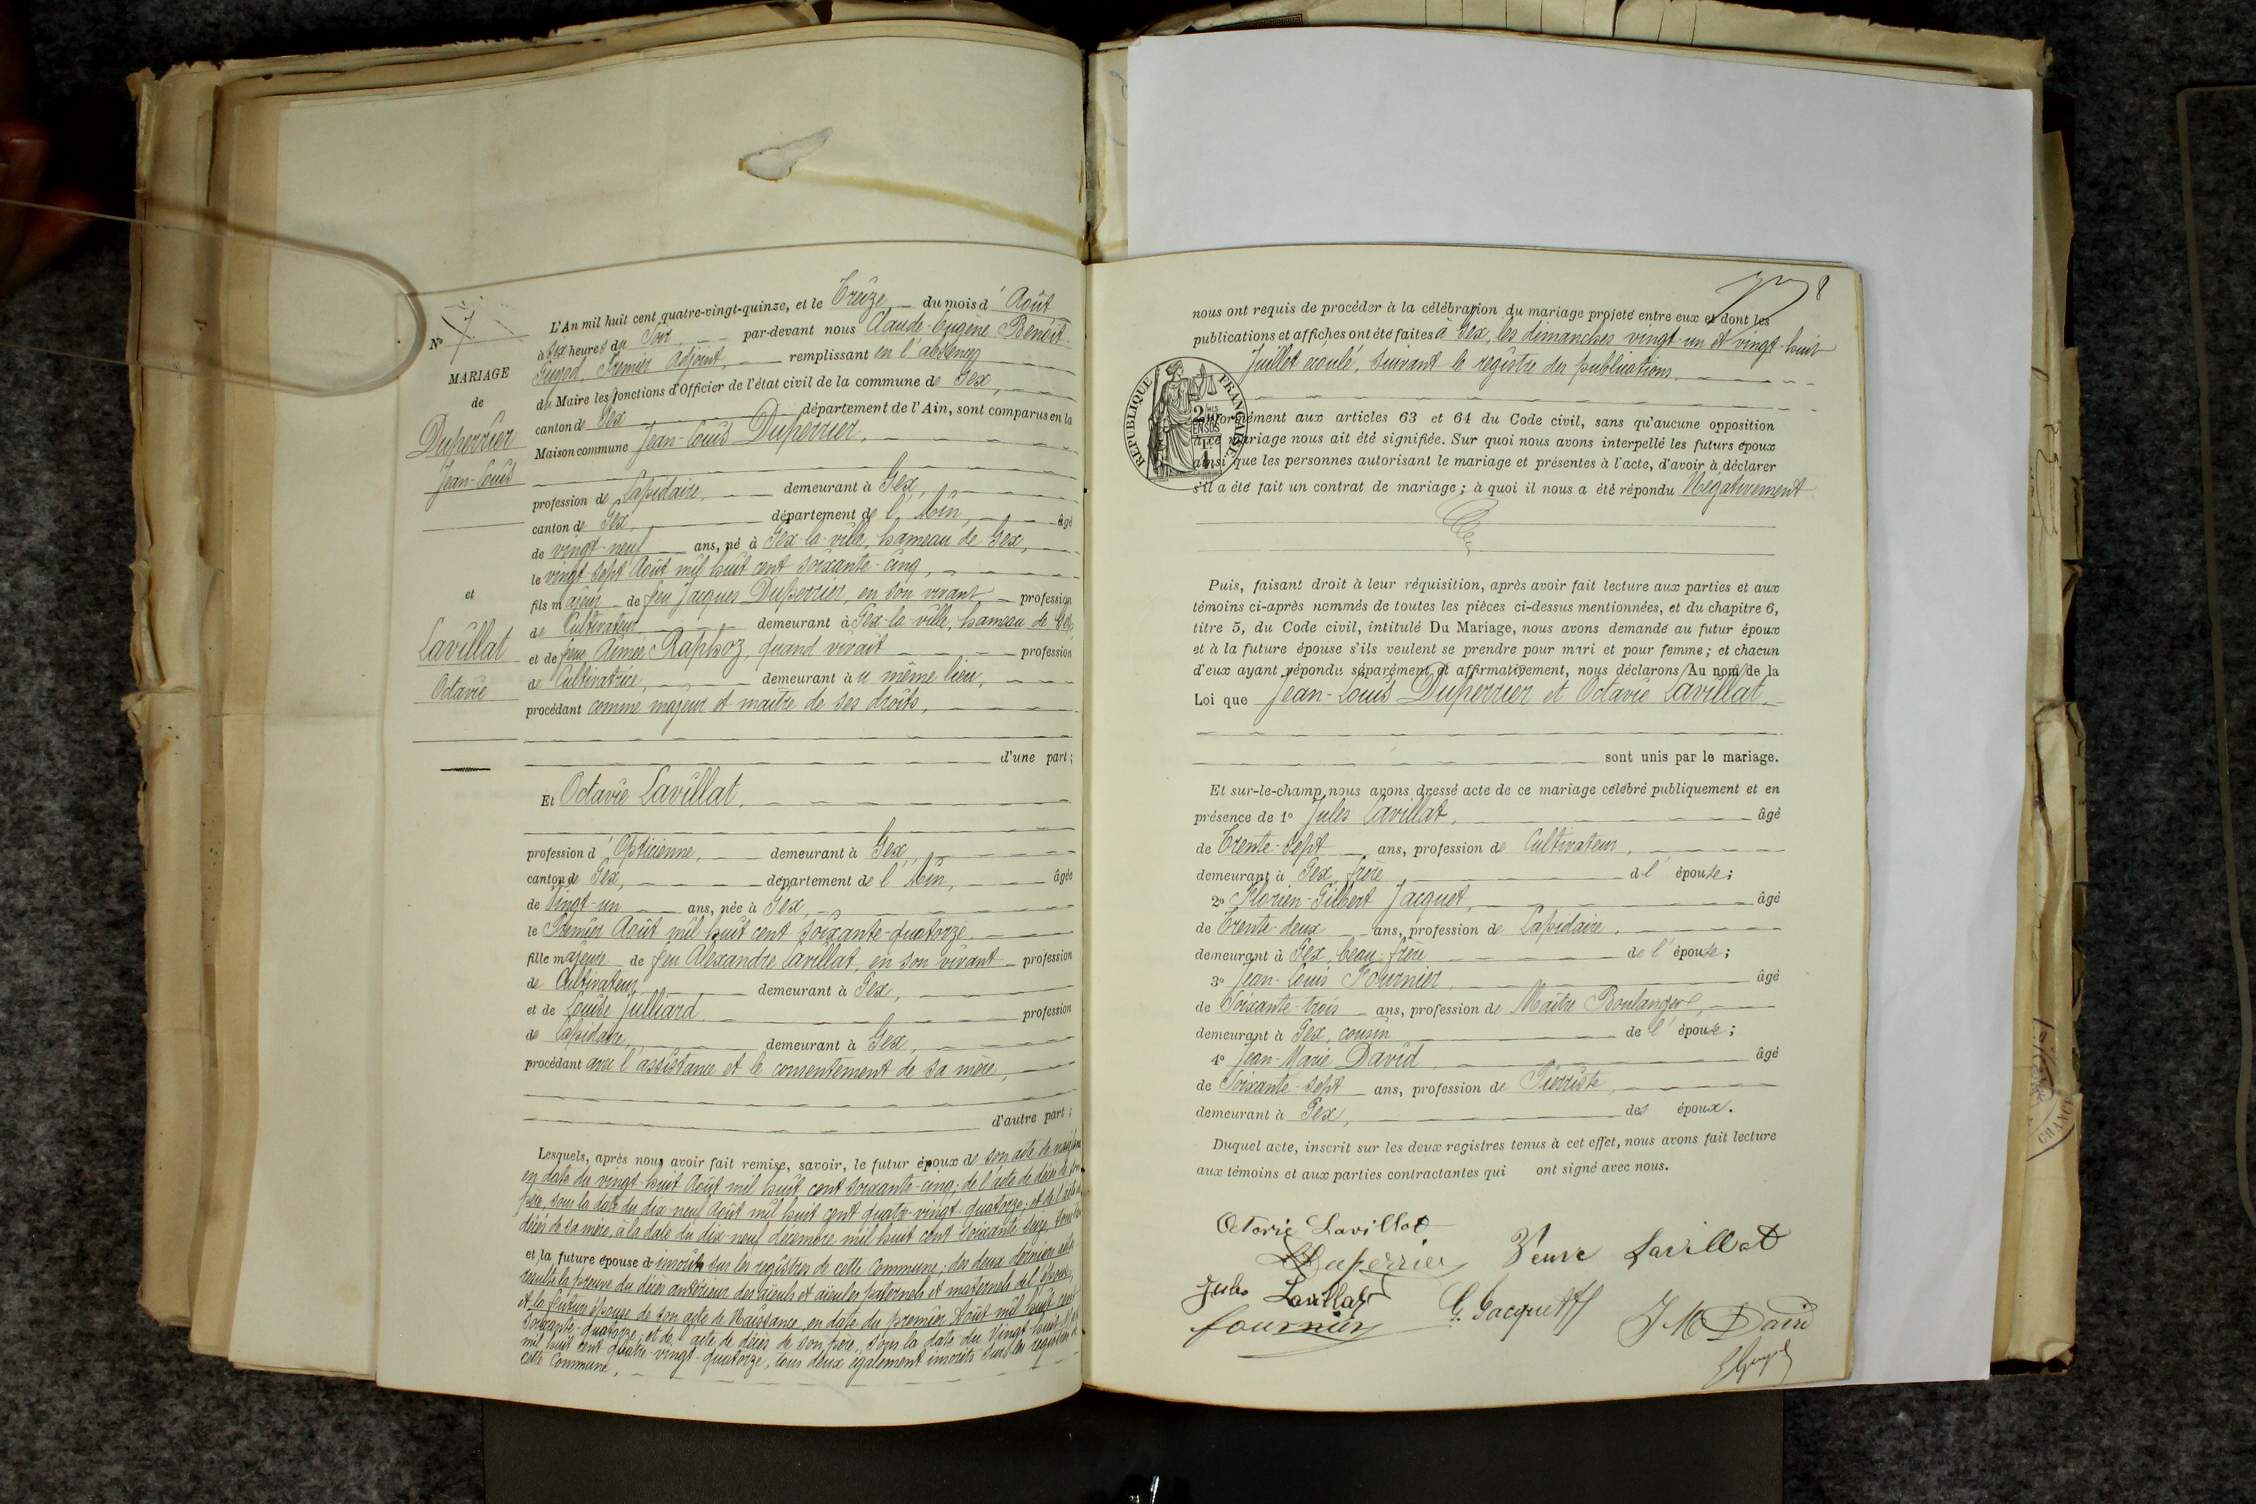 L'An mil huit cent quatre-vingt-quinze, et le Treize du mois d'Août
à six heures du Soir, par-devant nous Claude-Eugène Benoit
Premier Adjoint, remplissant en l'absence
du Maire les fonctions d'Officier de l'état civil de la commune de Gex,
canton de Gex département de l'Ain, sont comparus en la
Maison commune Jean-Louis Duperrier,
profession de Lapidaire, demeurant à Gex,
canton de Gex, département de l'Ain, âgé
de vingt-neuf ans, né à Gex-la-ville, hameau de Gex,
le vingt-sept Août mil huit cent soixante-cinq,
fils majeur de feu Jacques Duperrier, en son vivant, profession
de Cultivateur demeurant à Gex-la-ville, hameau de Gex,
et de feue Aimée Raphoz, quand vivait profession
de Cultivatrice, demeurant au même lieu,
procédant comme majeur et maître de ses droits,
d'une part;
Et Octavie Lavillat,
profession d'Opticienne, demeurant à Gex,
canton de Gex, département de l'Ain, âgée
de Vingt-un ans, née à Gex,
le Premier Août mil huit cent soixante-quatorze
fille majeure de feu Alexandre Lavillat, en son vivant profession
de Cultivateur demeurant à Gex,
et de Louise Julliard profession
de Lapidaire, demeurant à Gex,
procédant avec l'assistance et le consentement de sa mère,
d'autre part;
Lesquels, après nous avoir fait remise, savoir, le futur époux de son acte de naissance
en date du vingt-huit Août mil huit cent soixante-cinq; de l'acte de décès de son
père, sous la date du dix-neuf Août mil huit cent quatre-vingt-quatorze; et de l'acte de
décès de sa mère, à la date du dix-neuf décembre mil huit cent soixante-seize, tous
et la future épouse d inscrits sur les registres de cette Commune; des deux derniers actes
résulte la preuve du décès antérieur des aïeuls et aïeules paternels et maternels de l'époux,
et la future épouse de son acte de Naissance, en date du premier Août mil huit cent
soixante-quatorze; et de l'acte de décès de son père, sous la date du Vingt-huit
mil huit cent quatre-vingt-quatorze, tous deux également inscrits sur les registres de
cette Commune.
N° 7
MARIAGE
de
Duperrier
Jean-Louis
et
Lavillat
Octavie
8
nous ont requis de procéder à la célébration du mariage projeté entre eux et dont les
publications et affiches ont été faites à Gex, les dimanches vingt-un et vingt-huit
Juillet écoulé, suivant le registre des publications.
conformément aux articles 63 et 64 du Code civil, sans qu'aucune opposition
à ce mariage nous ait été signifiée. Sur quoi nous avons interpellé les futurs époux
ainsi que les personnes autorisant le mariage et présentes à l'acte, d'avoir à déclarer
s'il a été fait un contrat de mariage; à quoi il nous a été répondu Négativement
REPUBLIQUE FRANCAISE
Puis, faisant droit à leur réquisition, après avoir fait lecture aux parties et aux
témoins ci-après nommés de toutes les pièces ci-dessus mentionnées, et du chapitre 6,
titre 5, du Code civil, intitulé Du Mariage, nous avons demandé au futur époux
et à la future épouse s'ils veulent se prendre pour mari et pour femme; et chacun
d'eux ayant répondu séparément et affirmativement, nous déclarons Au nom de la
Loi que Jean-Louis Duperrier et Octavie Lavillat,
sont unis par le mariage.
Et sur-le-champ nous avons dressé acte de ce mariage célébré publiquement et en
présence de 1° Jules Lavillat, âgé
de Trente-sept ans, profession de Cultivateur,
demeurant à Gex, frère de l'épouse;
2° Florien-Gilbert Jacquet, âgé
de Trente-deux ans, profession de Lapidaire,
demeurant à Gex, beau-frère de l'épouse;
3° Jean-Louis Fournier, âgé
de Soixante-trois ans, profession de Maître Boulanger,
demeurant à Gex, cousin de l'épouse;
4° Jean-Marie David âgé
de Soixante-sept ans, profession de Pierriste,
demeurant à Gex, des époux.
Duquel acte, inscrit sur les deux registres tenus à cet effet, nous avons fait lecture
aux témoins et aux parties contractantes qui ont signé avec nous.
Octavie Lavillat
Duperrier Veuve Lavillat
Jules Lavillat
G. Jacquet
fournier J M David